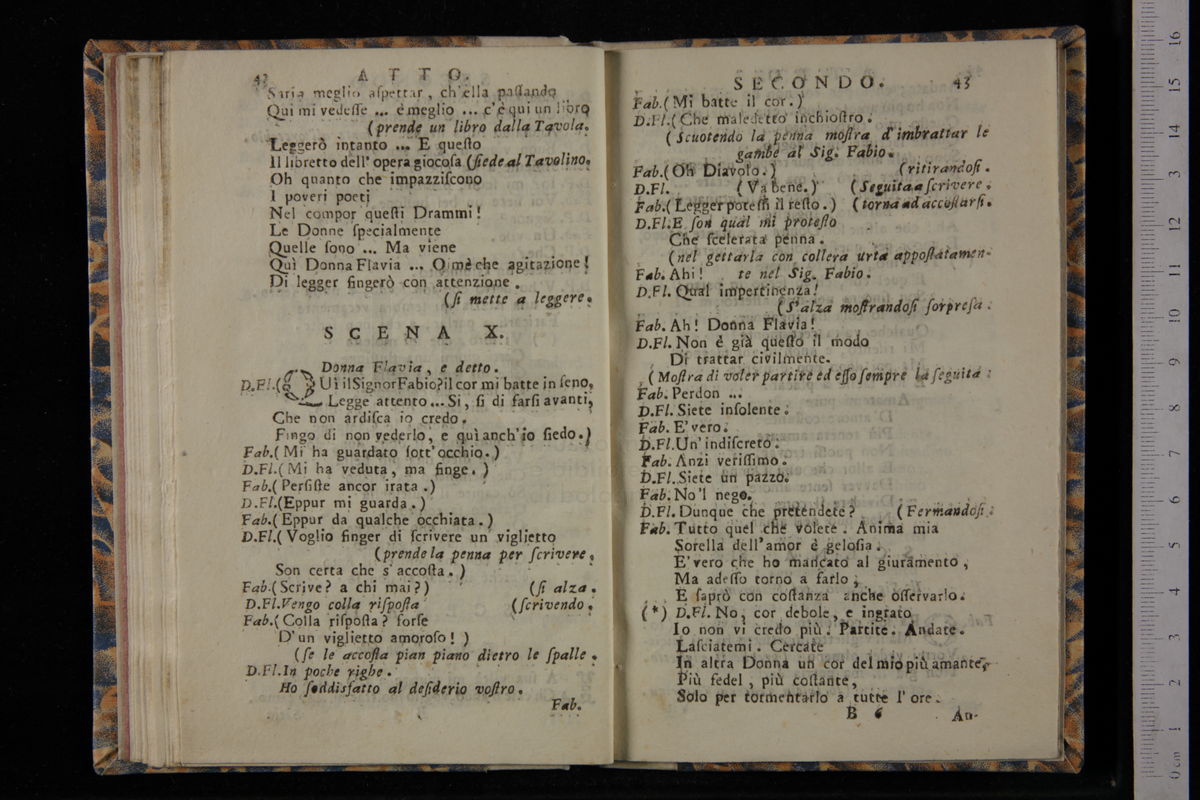 42 ATTO.
Saria meglio aſpettar, ch'ella paſſando
Qui mi vedeſſe ... è meglio ... c'è qui un libro
(prende un libro dalla Tavola.
Leggerò intanto ... E queſto
Il libretto dell' opera giocoſa (ſiede al Tavolino.
Oh quanto che impazziſcono
I poveri poeti
Nel compor queſti Drammi!
Le Donne ſpecialmente
Quelle ſono ... Ma viene
Quì Donna Flavia ... Oimè che agitazione!
Di legger fingerò con attenzione.
(ſi mette a leggere.
SCENA X.
Donna Flavia, e detto.
D.Fl.(QUì il Signor Fabio? il cor mi batte in ſeno,
Legge attento ... Si, ſi di farſi avanti,
Che non ardiſca io credo.
Fingo di non vederlo, e quì anch'io ſiedo.)
Fab.(Mi ha guardato ſott'occhio.)
D.Fl.(Mi ha veduta, ma finge.)
Fab.(Perſiſte ancor irata.)
D.Fl.(Eppur mi guarda.)
Fab.(Eppur da qualche occhiata.)
D.Fl.(Voglio finger di ſcrivere un viglietto
(prende la penna per ſcrivere,
Son certa che s'accoſta.)
Fab.(Scrive? a chi mai?) (ſi alza.
D.Fl.Vengo colla riſpoſta (ſcrivendo.
Fab.(Colla riſpoſta? forſe
D'un viglietto amoroſo!)
(ſe le accoſta pian piano dietro le ſpalle.
D.Fl.In poche righe.
Ho ſoddisfatto al deſiderio voſtro.
Fab.
SECONDO. 43
Fab.(Mi batte il cor.)
D.Fl.(Che maledetto inchioſtro.
(Scuotendo la penna moſtra d'imbrattar le
gambe al Sig. Fabio.
Fab.(Oh Diavolo.) (ritirandoſi.
D.Fl. (Va bene.) (Seguita a ſcrivere.
Fab.(Legger poteſſi il reſto.) (torna ad accoſtarſi.
D.Fl.E ſon qual mi proteſto
Che ſcelerata penna.
(nel gettarla con collera urta appoſtatamen-
Fab. Ahi! te nel Sig. Fabio.
D.Fl. Qual impertinenza!
(S'alza moſtrandoſi ſorpreſa.
Fab. Ah! Donna Flavia!
D.Fl. Non è già queſto il modo
Di trattar civilmente.
(Moſtra di voler partire ed eſſo ſempre la ſeguita.
Fab. Perdon ...
D.Fl. Siete inſolente.
Fab. E' vero.
D.Fl.Un'indiſcreto.
Fab. Anzi veriſſimo.
D.Fl.Siete un pazzo.
Fab. No'l nego.
D.Fl. Dunque che pretendete? (Fermandoſi.
Fab. Tutto quel che volete. Anima mia
Sorella dell'amor è geloſia.
E' vero che ho mancato al giuramento,
Ma adeſſo torno a farlo;
E ſaprò con coſtanza anche oſſervarlo.
(*) D.Fl. No, cor debole, e ingrato
Io non vi credo più. Partite. Andate.
Laſciatemi. Cercate
In altra Donna un cor del mio più amante,
Più fedel, più coſtante,
Solo per tormentarlo a tutte l'ore.
B 6 An-